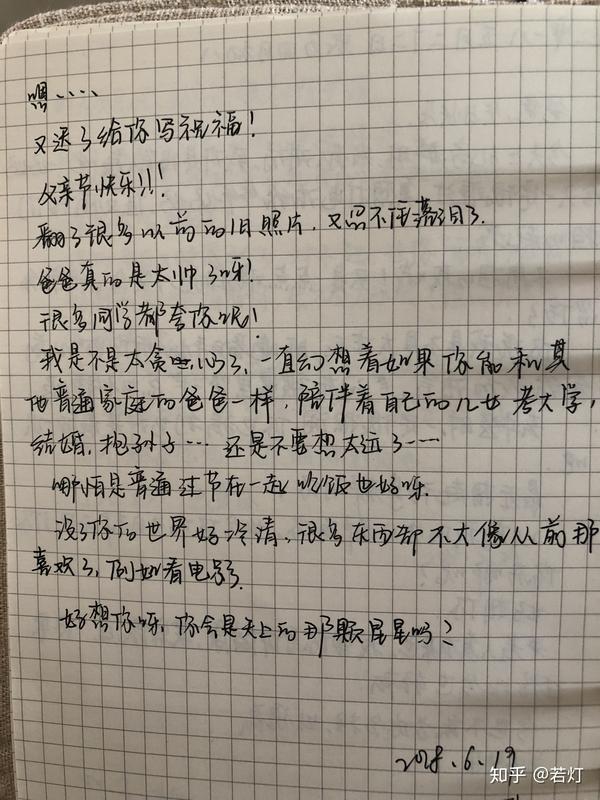 嗯....
又迟了给你写祝福！
父亲节快乐！！！
翻了很多以前的旧照片，又忍不住落泪了.
爸爸真的是太帅了呀！
很多同学都夸你呢！
我是不是太贪心了，一直幻想着如果你能和其
他普通家庭的爸爸一样，陪伴着自己的儿女考大学，
结婚，抱孙子…还是不要想太远了……
哪怕是普通过节在一起吃饭也好呀.
没了你的世界好冷清，很多东西却不太像从前那
喜欢了，例如看电影了.
好想你呀，你会是天上的那颗星星吗？
2018.6.19
知乎 @若灯